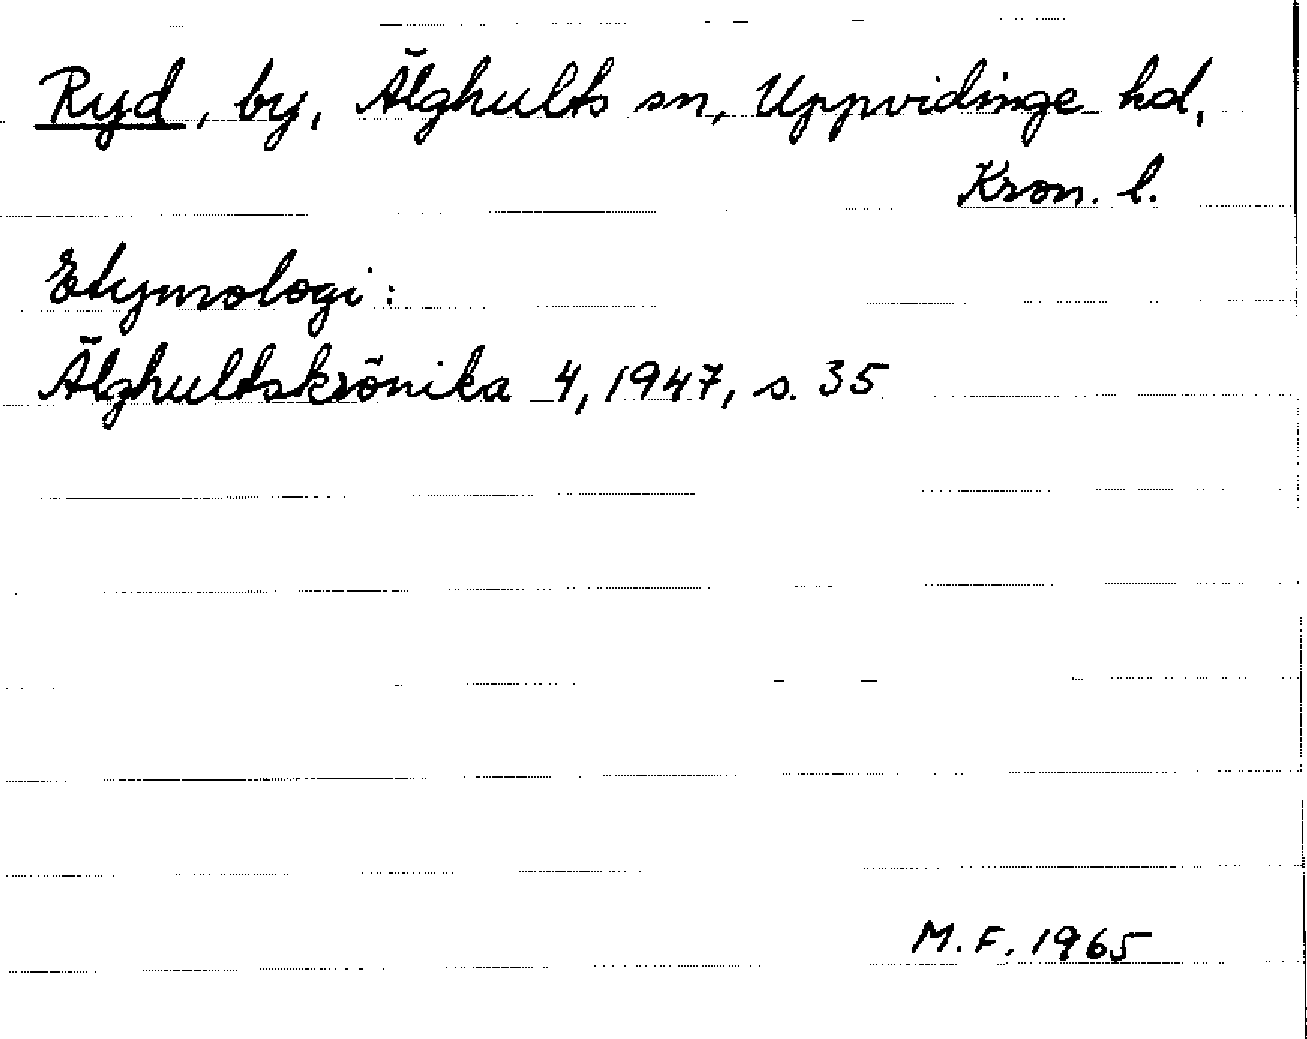 Ryd, by, Älghults sn, Uppvidinge hd,
Kron. l.
Etymologi:
Älghultskrönika 4, 1947, s. 35
M. F. 1965